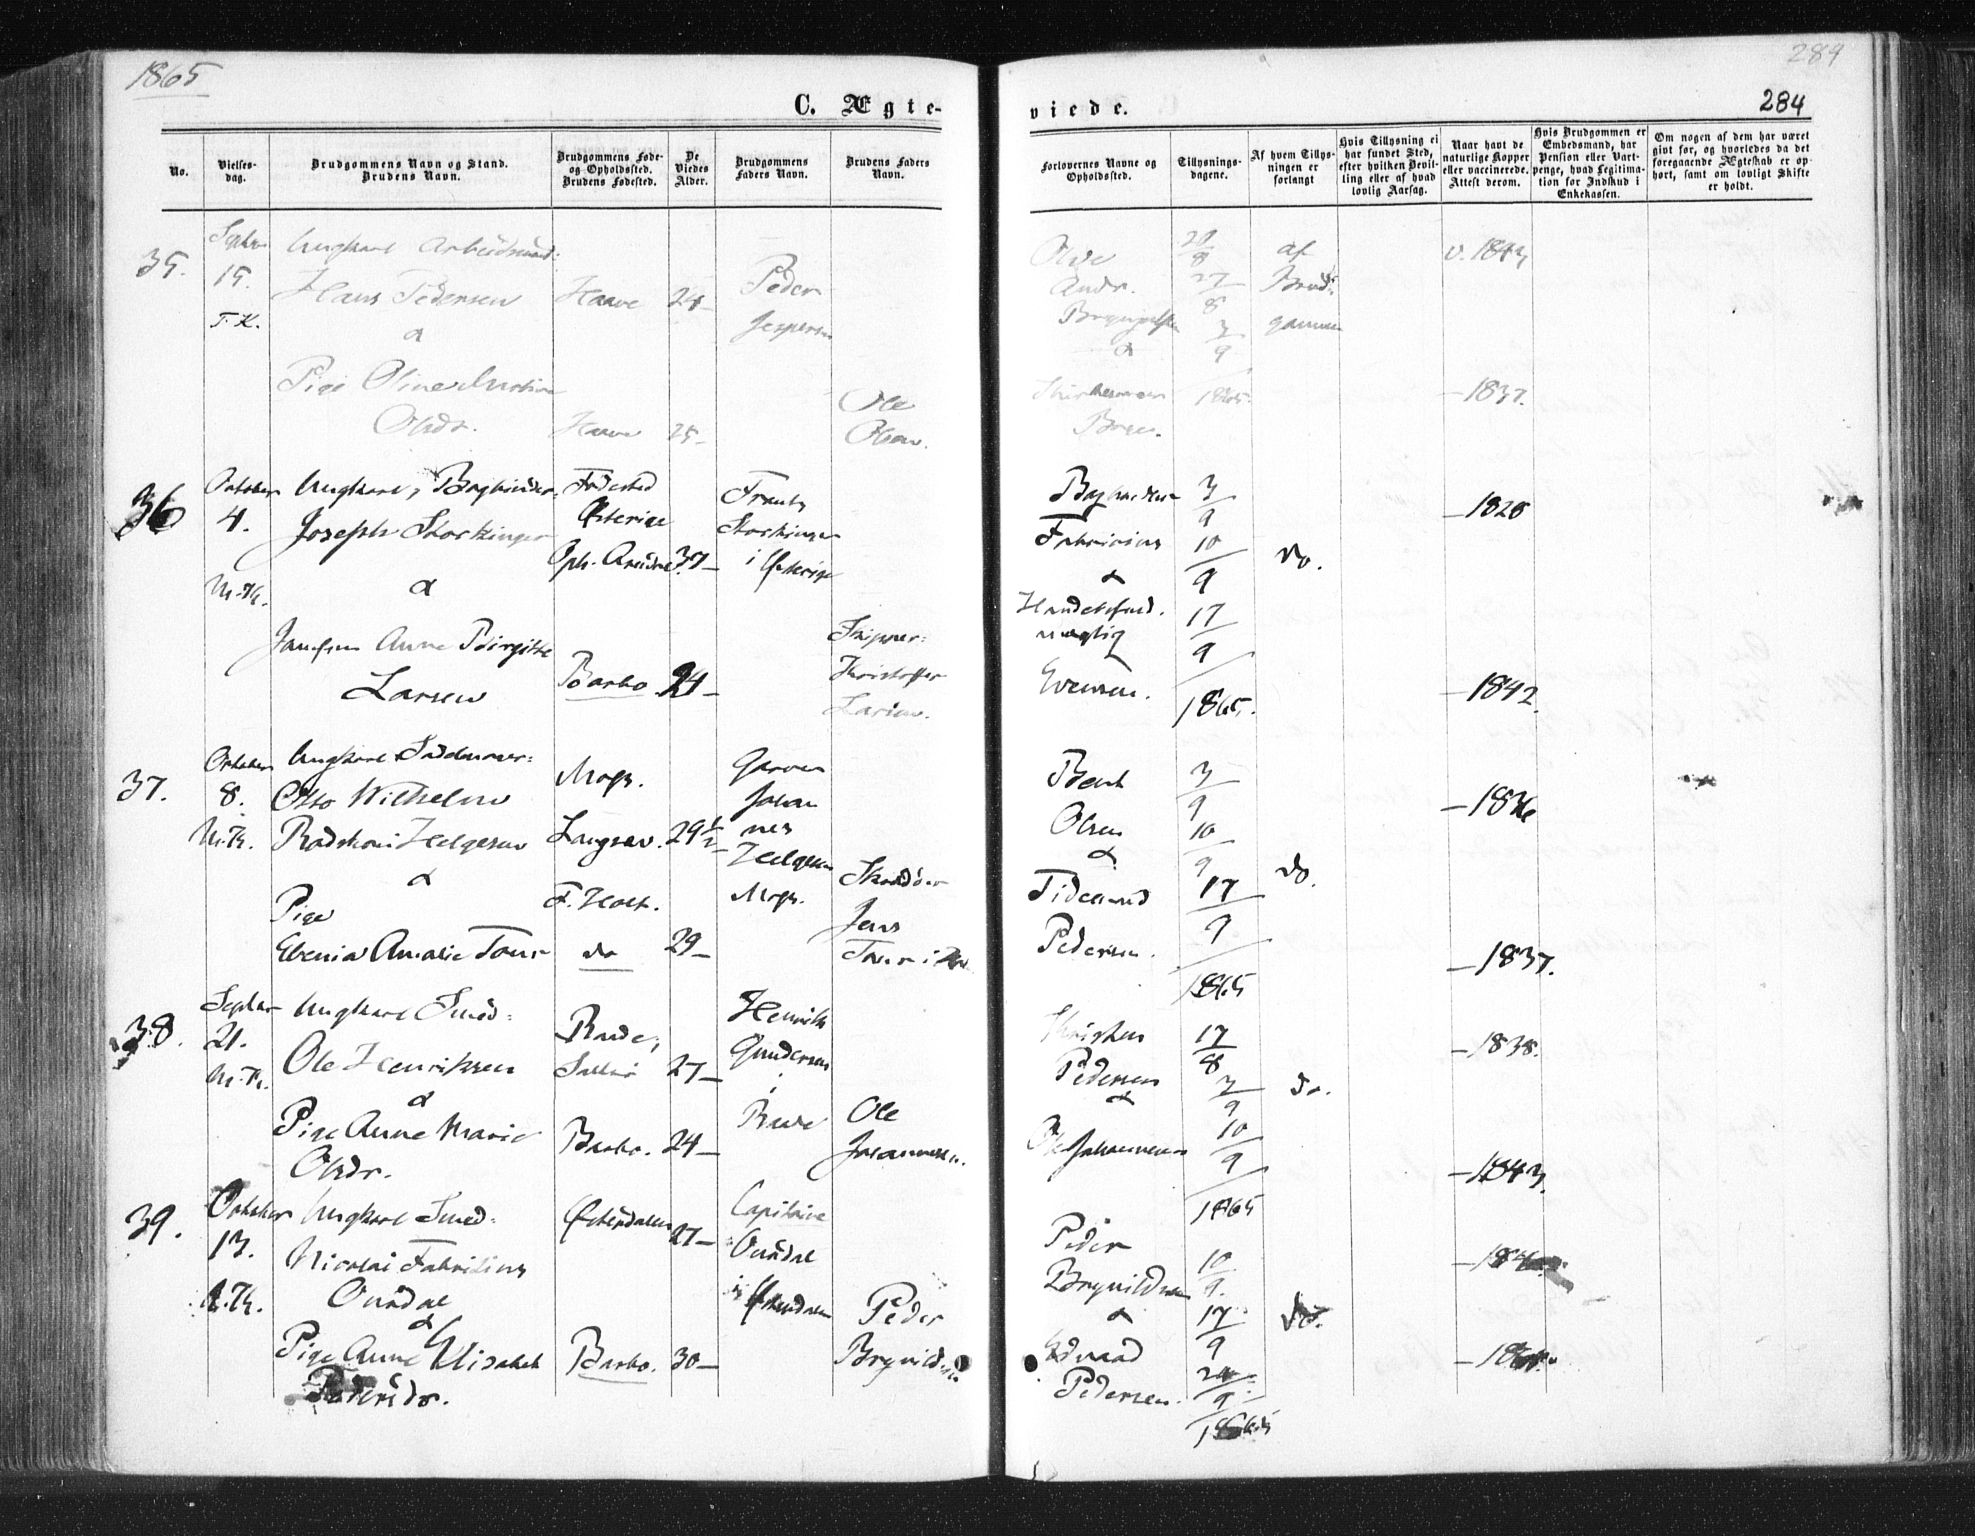 1865
289
284
C. Ægte-
viede.
No.
Vielses-
dag.
Brudgommens Navn og Stand.
Brudens Navn.
Brudgommens Føde-
og Opholdssted.
Brudens Fødested.
De
Viedes
Alder.
Brudgommens
Faders Navn.
Brudens Faders
Navn.
Forlovernes Navne og
Opholdssted.
Tillysnings-
dagene.
Af hvem Tillys-
ningen er
forlangt
Hvis Tillysning ei
har fundet Sted,
efter hvilken Bevil-
ling eller af hvad
lovlig Aarsag.
Naar havt de
naturlige Kopper
eller vaccinerede.
Attest derom.
Hvis Brudgommen er
Embedsmand, har
Pension eller Vart-
penge, hvad Legitima-
tion for Indskud i
Enkekassen.
Om nogen af dem har været
gift før, og hvorledes da det
foregaaende Ægteskab er op-
hørt, samt om lovligt Skifte
er holdt.
35.
Septbr
15.
T.K.
Ungkarl
Hans Pedersen
&
Pige Oline
Olsdr.
24
25
Peder
Jespersen
Ole
Olsen.
Andr.
&
20/8
27/8
3/9
1865.
af
Brud-
gommen
v. 1843
1837.
36
October
4.
Ungkarl, Bogbinder
Joseph Stockinger
&
Jomfru Anne Birgitte
Larsen
Fødested
Østerige
Oph. Arendal
Barbo
37
24
Frantz
Stockinger
i Østerige
Skipper
Christoffer
Larsen.
Bogbinder
Fabricius
&
Evensen.
3/9
10/9
17/9
1865.
do.
1828
1842.
37.
October
8.
Ungkarl
Otto Wilhelm
Helgesen
&
Pige
Amalie Tour
Langsæv.
F. Holt.
do
29 1/2
29
Garver
Johan
nes
Helgesen
Jens
Bent
Olsen
&
Tidemand
Pedersen.
3/9
10/9
17/9
1865
do.
1836
1837.
38.
Septbr
21.
Ungkarl Smed
Ole Henriksen
&
Pige Anne Marie
Olsdr.
Barbo.
27
24
Henrik
Gundersen
i
Ole
Johannesen.
Pedersen
&
Ole Johannesen
17/8
3/9
10/9
1865
do.
1838.
1843.
39.
October
13.
Ungkarl Smed
Nicolai Fabritius
&
Pige Anne Elisabeth
Pedersdr.
Østerdalen
Barbo.
27
30
Capitaine
i Østerdalen
Peder
Brynildsen
Peder
Brynildsen
&
Edvard
Pedersen.
10/9
17/9
24/9
1865
do.